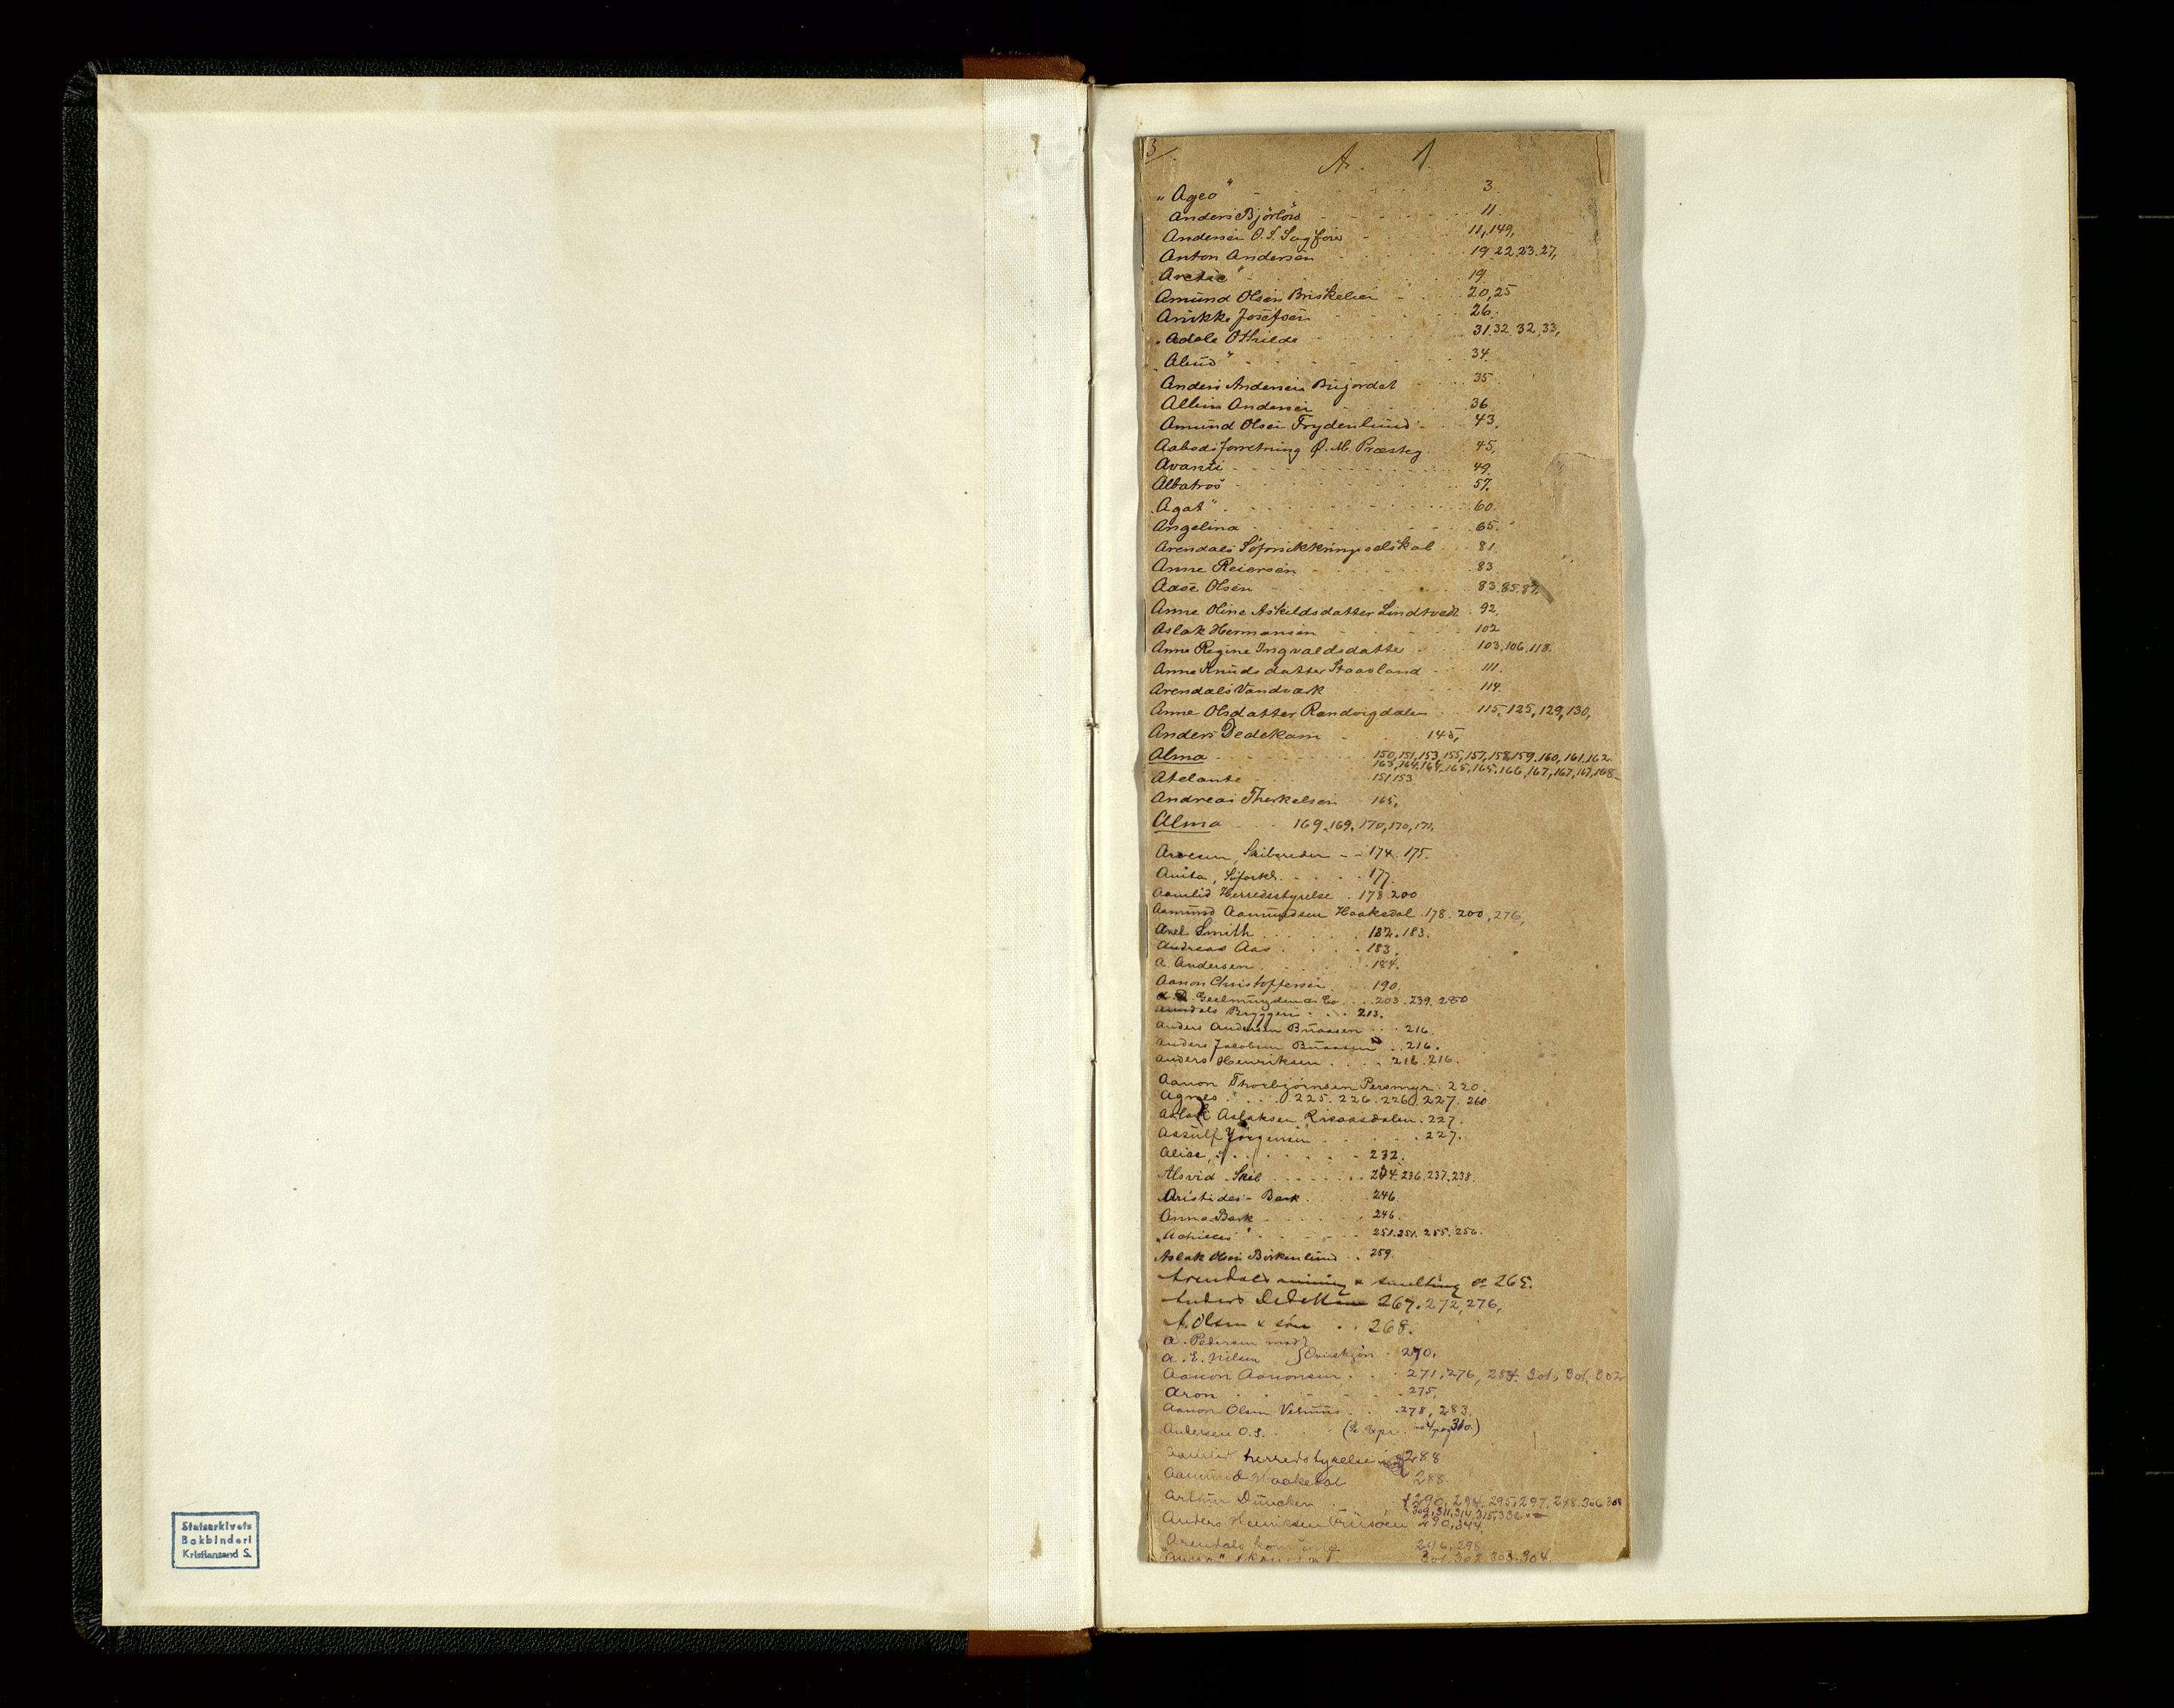 Statsarkivets
Bokbinderi
Kristiansand S.
3
A. 1
"Ageo" 3.
Anders Bjørlöw 11.
Andersen O. S. Sagfører 11, 149,
Anton Andersen 19.22.23.27,
"Arctic" 19
Amund Olsen Briskelien 20,25
Anikke Josefsen 26.
"Adele Othilde 31.32.32.33,
"Alund" 34.
Anders Andersen Bujordet 35
Albin Andersen 36
Amund Olsen Frydenlund 43,
Aabodsforretning Ø. M. Præsteg. 45,
Avanti 49.
Albatros 57.
"Agat" 60.
Angelina 65.
Arendals Søforsikkringsselskab 81.
Anne Reiersen 83
Aase Olsen 83.85.87
Anne Oline Askildsdatter Lindtvedt 92.
Aslak Hermansen 102
Anne Regine Ingvaldsdatter 103.106.118.
Anne Knudsdatter Staavland 111.
Arendals Vandværk 114.
Anne Olsdatter Randvigdalen 115.125,129,130,
Anders Dedekam 145,
Alma 150,151,153,155,157,158,159.160,161.162
163,164,164,165,165,166,167,167,167,168
Atelante 151,153
Andreas Therkelsen 165,
Alma 169,169,170,170,171,
Arvesen, Skibsreder 174.175.
Anita, Søforkl. 177.
Aamlid Herredsstyrelse 178.200
Aamund Aamundsen Haaksdal 178.200,276,
Axel Smith 182.183.
Andreas Aas 183.
A. Andersen 184.
Aanon Christoffersen 190.
Geelmuyden & Co 203.239.280
Arendals Bryggeri 213.
Anders Andersen Buaasen 216.
Anders Jacobsen Buaasen 216.
Anders Henriksen 216.216.
Aanon Thorbjørnsen Persmyr 220.
Agnes 225.226.226.227.260
Aslak Aslaksen Risaasdalen 227.
Assulf Jörgensen 227.
Alice 232.
Alsvid Skib 234.236.237.238.
Aristides - Bark 246.
Anna Bark 246.
"Achilles" 251.251.255.256.
Aslak Olsen Birkenlund 259.
Arendals mining & smelting co 265.
Anders Dedekam 267.272,276,
A. Olsen & sön 268.
A. Pedersen
A. E. Nilsen 270.
Aanon Aanonsen 271,276, 284. 301, 301, 302
Aron 275,
Aanon Olsen 278, 283.
Andersen O.S.
Aamlid herredstyrelse 288
Aamund Haakedal 288
Arthur Duncken 290, 294.295,297,298.306.308
309,311,314,315,336
Anders Henriksen 290,344
Arendals komune 296,298
301.302.303.304